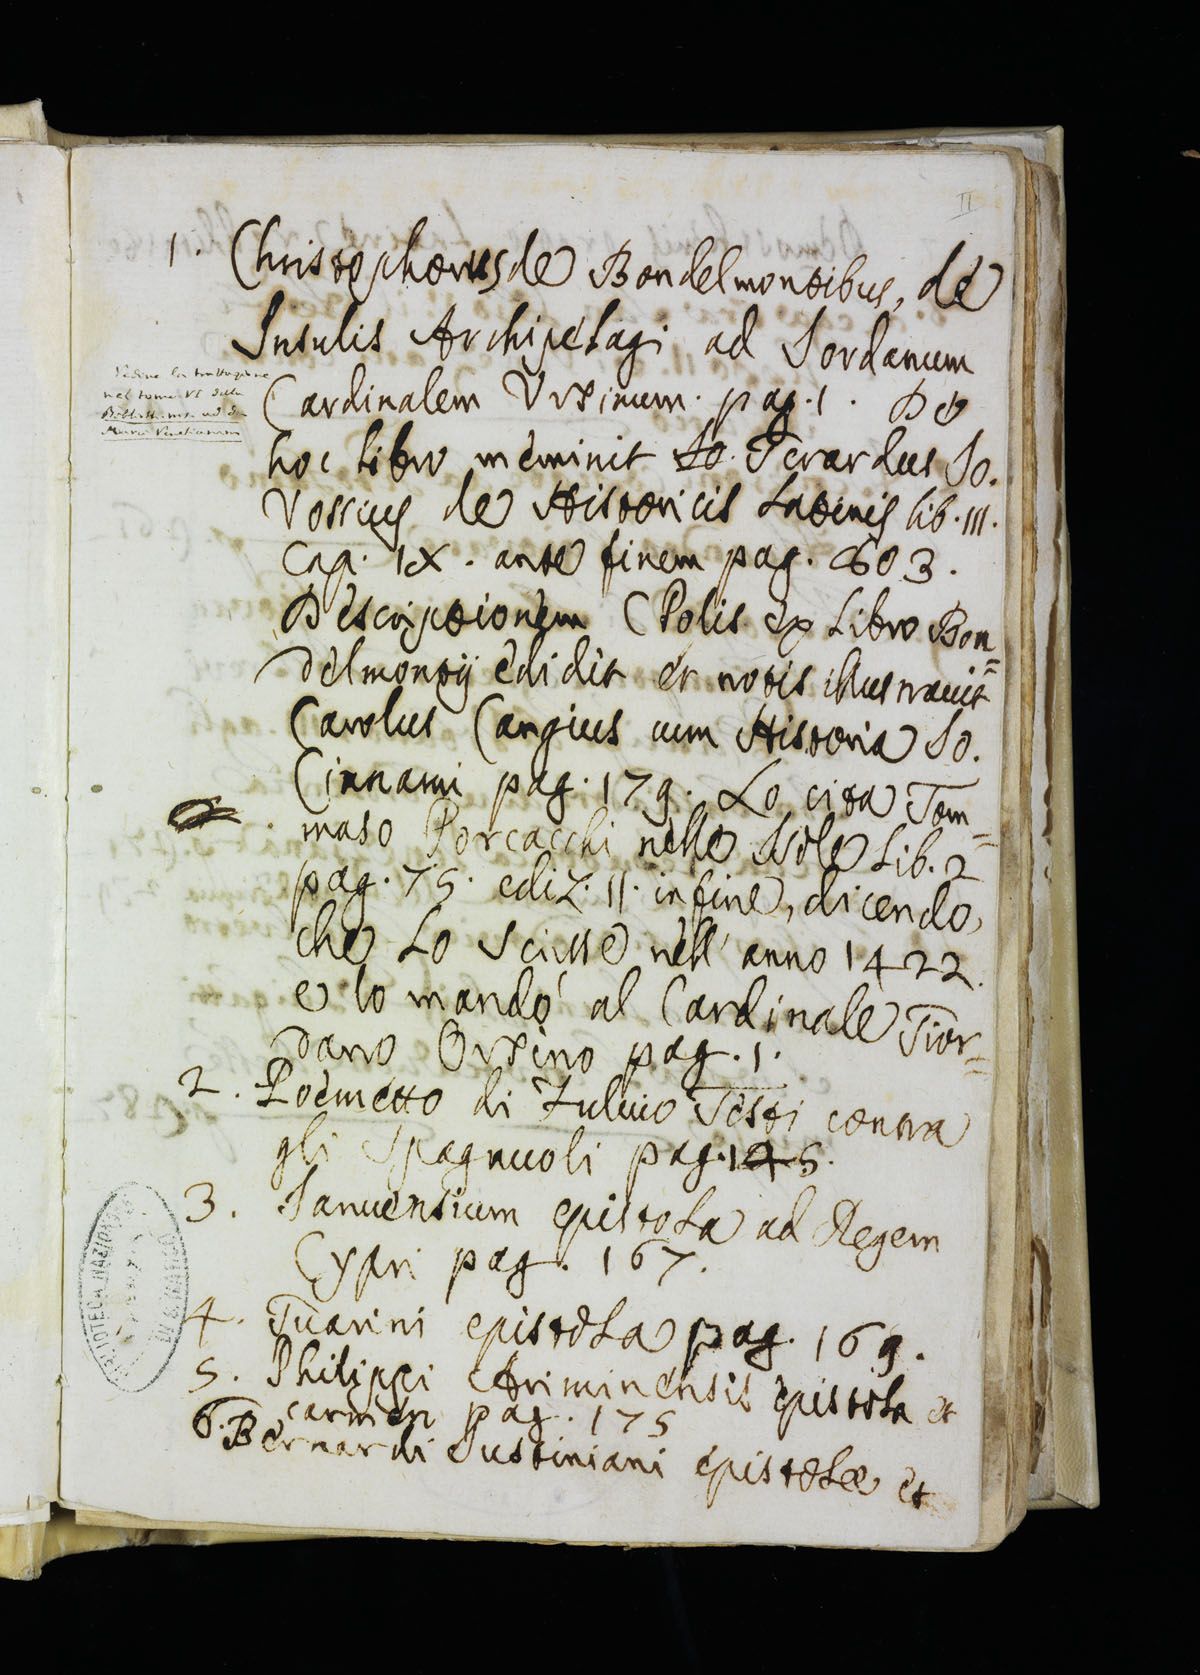 II
1. Christophorus de Bondelmontibus, de
Insulis Archipelagi ad Jordanum
Cardinalem Ursinum. pag. 1. De
hoc libro meminit Gerardus Jo.
Vossius de Historicis Latinis lib. III.
Cap. IX. ante finem pag. 603.
Descriptionem CPolis ex Libro Bon=
delmontij edidit et notis illustravit
Carolus Cangius cum Historia Jo.
Cinnami pag. 179. Lo cita Tom=
maso Porcacchi nelle Isole Lib. 2
pag. 75. ediz. II. in fine, dicendo,
che Lo scrisse nell' anno 1422.
e lo mandò al Cardinale Gior=
dano Orsino pag. 1.
Vedine la
nel tomo VI della
2. Poemetto di Fulvio Testi contra
gli Spagnuoli pag. 145.
3. Januensium epistola ad Regem
Cypri pag. 167.
4. Guarini epistola pag. 169.
5. Philippi Ariminensis epistola et
carmen pag. 175
6. Bernardi Justiniani epistolae et
BIBLIOTECA NAZIONALE
DI S. MARCO